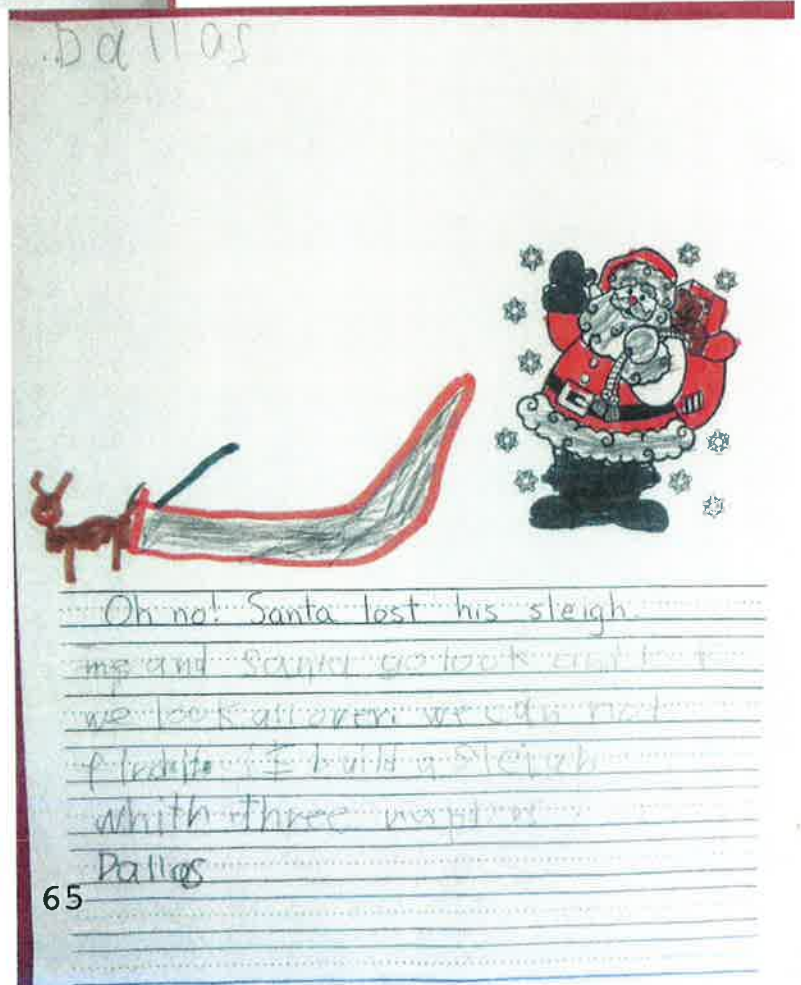 Dallas
Oh no! Santa lost his sleigh.
me and Santa go look
we look all over. we can not
I build a Sleigh
whith three
Dallas
65